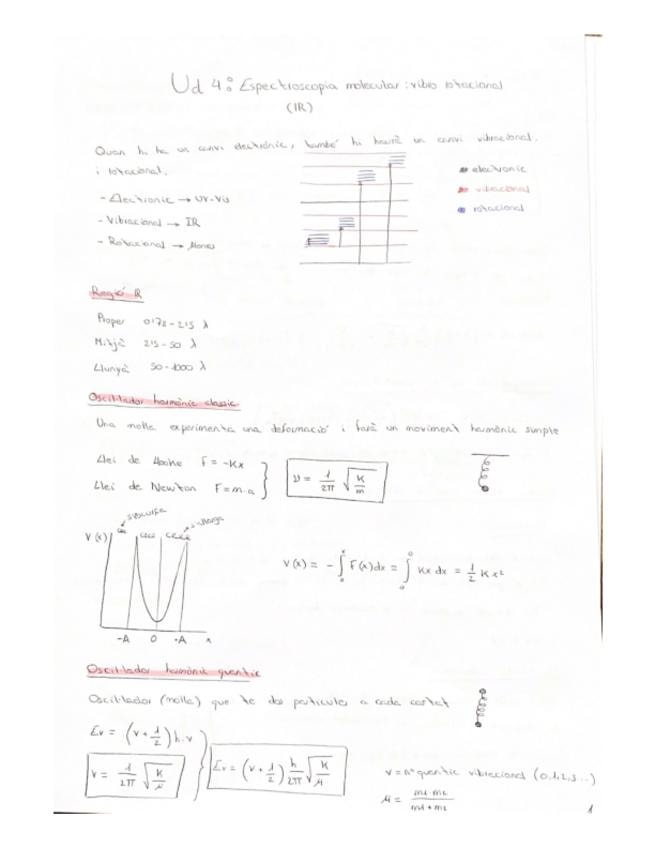 Ud 4: Espectroscopia molecular: vibro rotacional
(IR)
Quan hi ha un canvi electrónic, també hi haurà un canvi vibracional.
i rotacional.
- Electronic → UV-Vis
- Vibracional → IR
- Rotacional →
electronic
vibracional
rotacional
Regió IR
Proper 0'78 - 2'5 λ
Mitjà 2'5 - 50 λ
Llunyà 50 - 1000 λ
Oscil·lador harmònic classic
Una molla experimenta una deformació i farà un moviment harmònic simple
Llei de Hooke F = -Kx
Llei de Newton F = m·a
ν = 1/2π √K/m
V(x)
-A 0 +A x
V(x) = - ∫ F(x)dx = ∫ Kx dx = 1/2 K x²
Oscil·lador harmònic quantic
Oscil·lador (molla) que te dos particules a cada costat
Ev = (v + 1/2) h·ν
ν = 1/2π √K/μ
Ev = (v + 1/2) h/2π √K/μ
v = nº quantic vibracional (0,1,2,3...)
μ = m1·m2/m1+m2
1